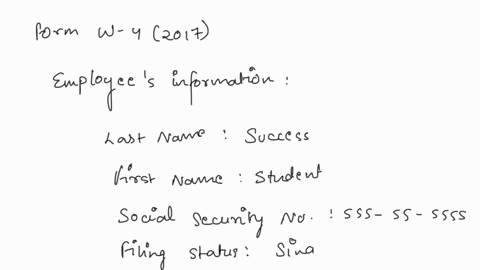 Form W-4 (2017)
Employee's information :
Last Name : Success
First Name : Student
Social Security No. : 555-55-5555
Filing status :